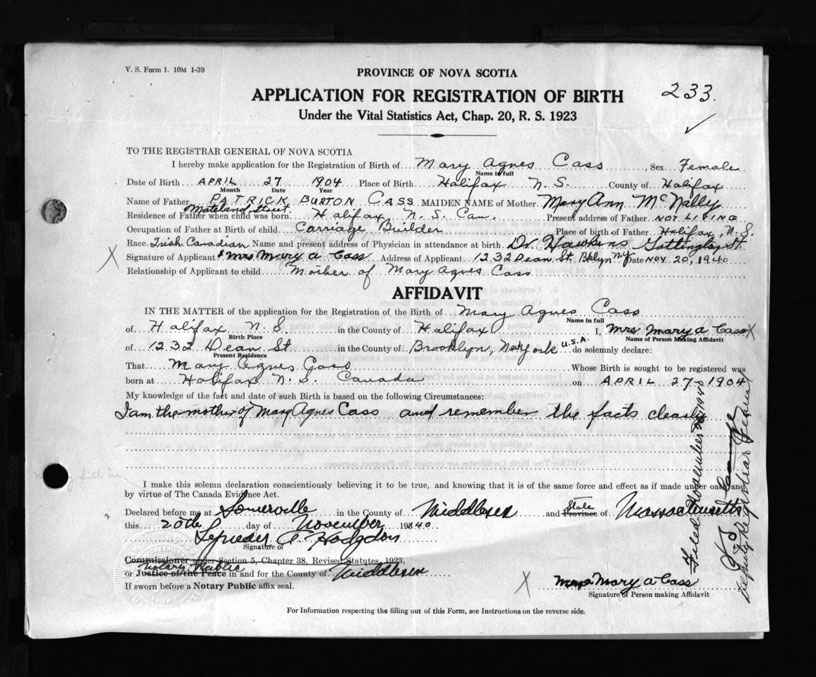 V. S. Form 1. 10M 1-39
PROVINCE OF NOVA SCOTIA
APPLICATION FOR REGISTRATION OF BIRTH
233.
Under the Vital Statistics Act, Chap. 20, R. S. 1923
TO THE REGISTRAR GENERAL OF NOVA SCOTIA
I hereby make application for the Registration of Birth of Mary Agnes Cass, Sex Female
Name in full
Date of Birth APRIL 27 1904 Place of Birth Halifax N.S. County of Halifax
Month Date Year
Name of Father PATRICK BURTON CASS MAIDEN NAME of Mother Mary Ann McNally
Maitland Street
Residence of Father when child was born. Halifax, N. S. Can. Present address of Father NOT LIVING
Occupation of Father at Birth of child Carriage Builder Place of birth of Father Halifax, N.S.
Race. Irish Canadian Name and present address of Physician in attendance at birth. Dr. Hawkins Gottingen St.
X Signature of Applicant Mrs Mary a Cass Address of Applicant 1232 Dean St. Bklyn NY Date NOV 20, 1940
Relationship of Applicant to child Mother of Mary Agnes Cass
AFFIDAVIT
IN THE MATTER of the application for the Registration of the Birth of Mary Agnes Cass
Name in full
of Halifax N S in the County of Halifax I, Mrs Mary a Cass X
Birth Place Name of Person Making Affidavit
of 1232 Dean St in the County of Brooklyn, New York U.S.A. do solemnly declare:
Present Residence
That Mary Agnes Cass Whose Birth is sought to be registered was
born at Halifax N. S. Canada on APRIL 27-1904
My knowledge of the fact and date of such Birth is based on the following Circumstances:
I am the mother of Mary Agnes Cass and remember the facts clearly
I make this solemn declaration conscientiously believing it to be true, and knowing that it is of the same force and effect as if made under oath and
by virtue of The Canada Evidence Act.
Declared before me at Somerville in the County of Middlesex and State Province of Massachusetts
this 20th day of November 1940
A. Hodgdon
Signature of
Commissioner under Section 5, Chapter 38, Revised Statutes, 1923
Notary Public
or Justice of the Peace in and for the County of Middlesex
If sworn before a Notary Public affix seal.
X Mrs Mary a Cass
Signature of Person making Affidavit
For Information respecting the filling out of this Form, see Instructions on the reverse side.
Filed November
Deputy Registrar General